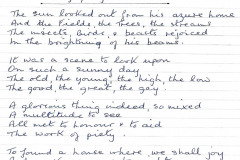 The sun looked out from his azure home
And the fields, the trees, the streams
The insects, birds, & beasts rejoiced
In the brightning of his beams.
It was a scene to look upon
On such a sunny day
The old, the young, the high, the low
The good, the great, the gay.
A glorious thing indeed, so mixed
A multitude to see
All met to honour & to aid
The work of piety.
To found a house where, we shall joy